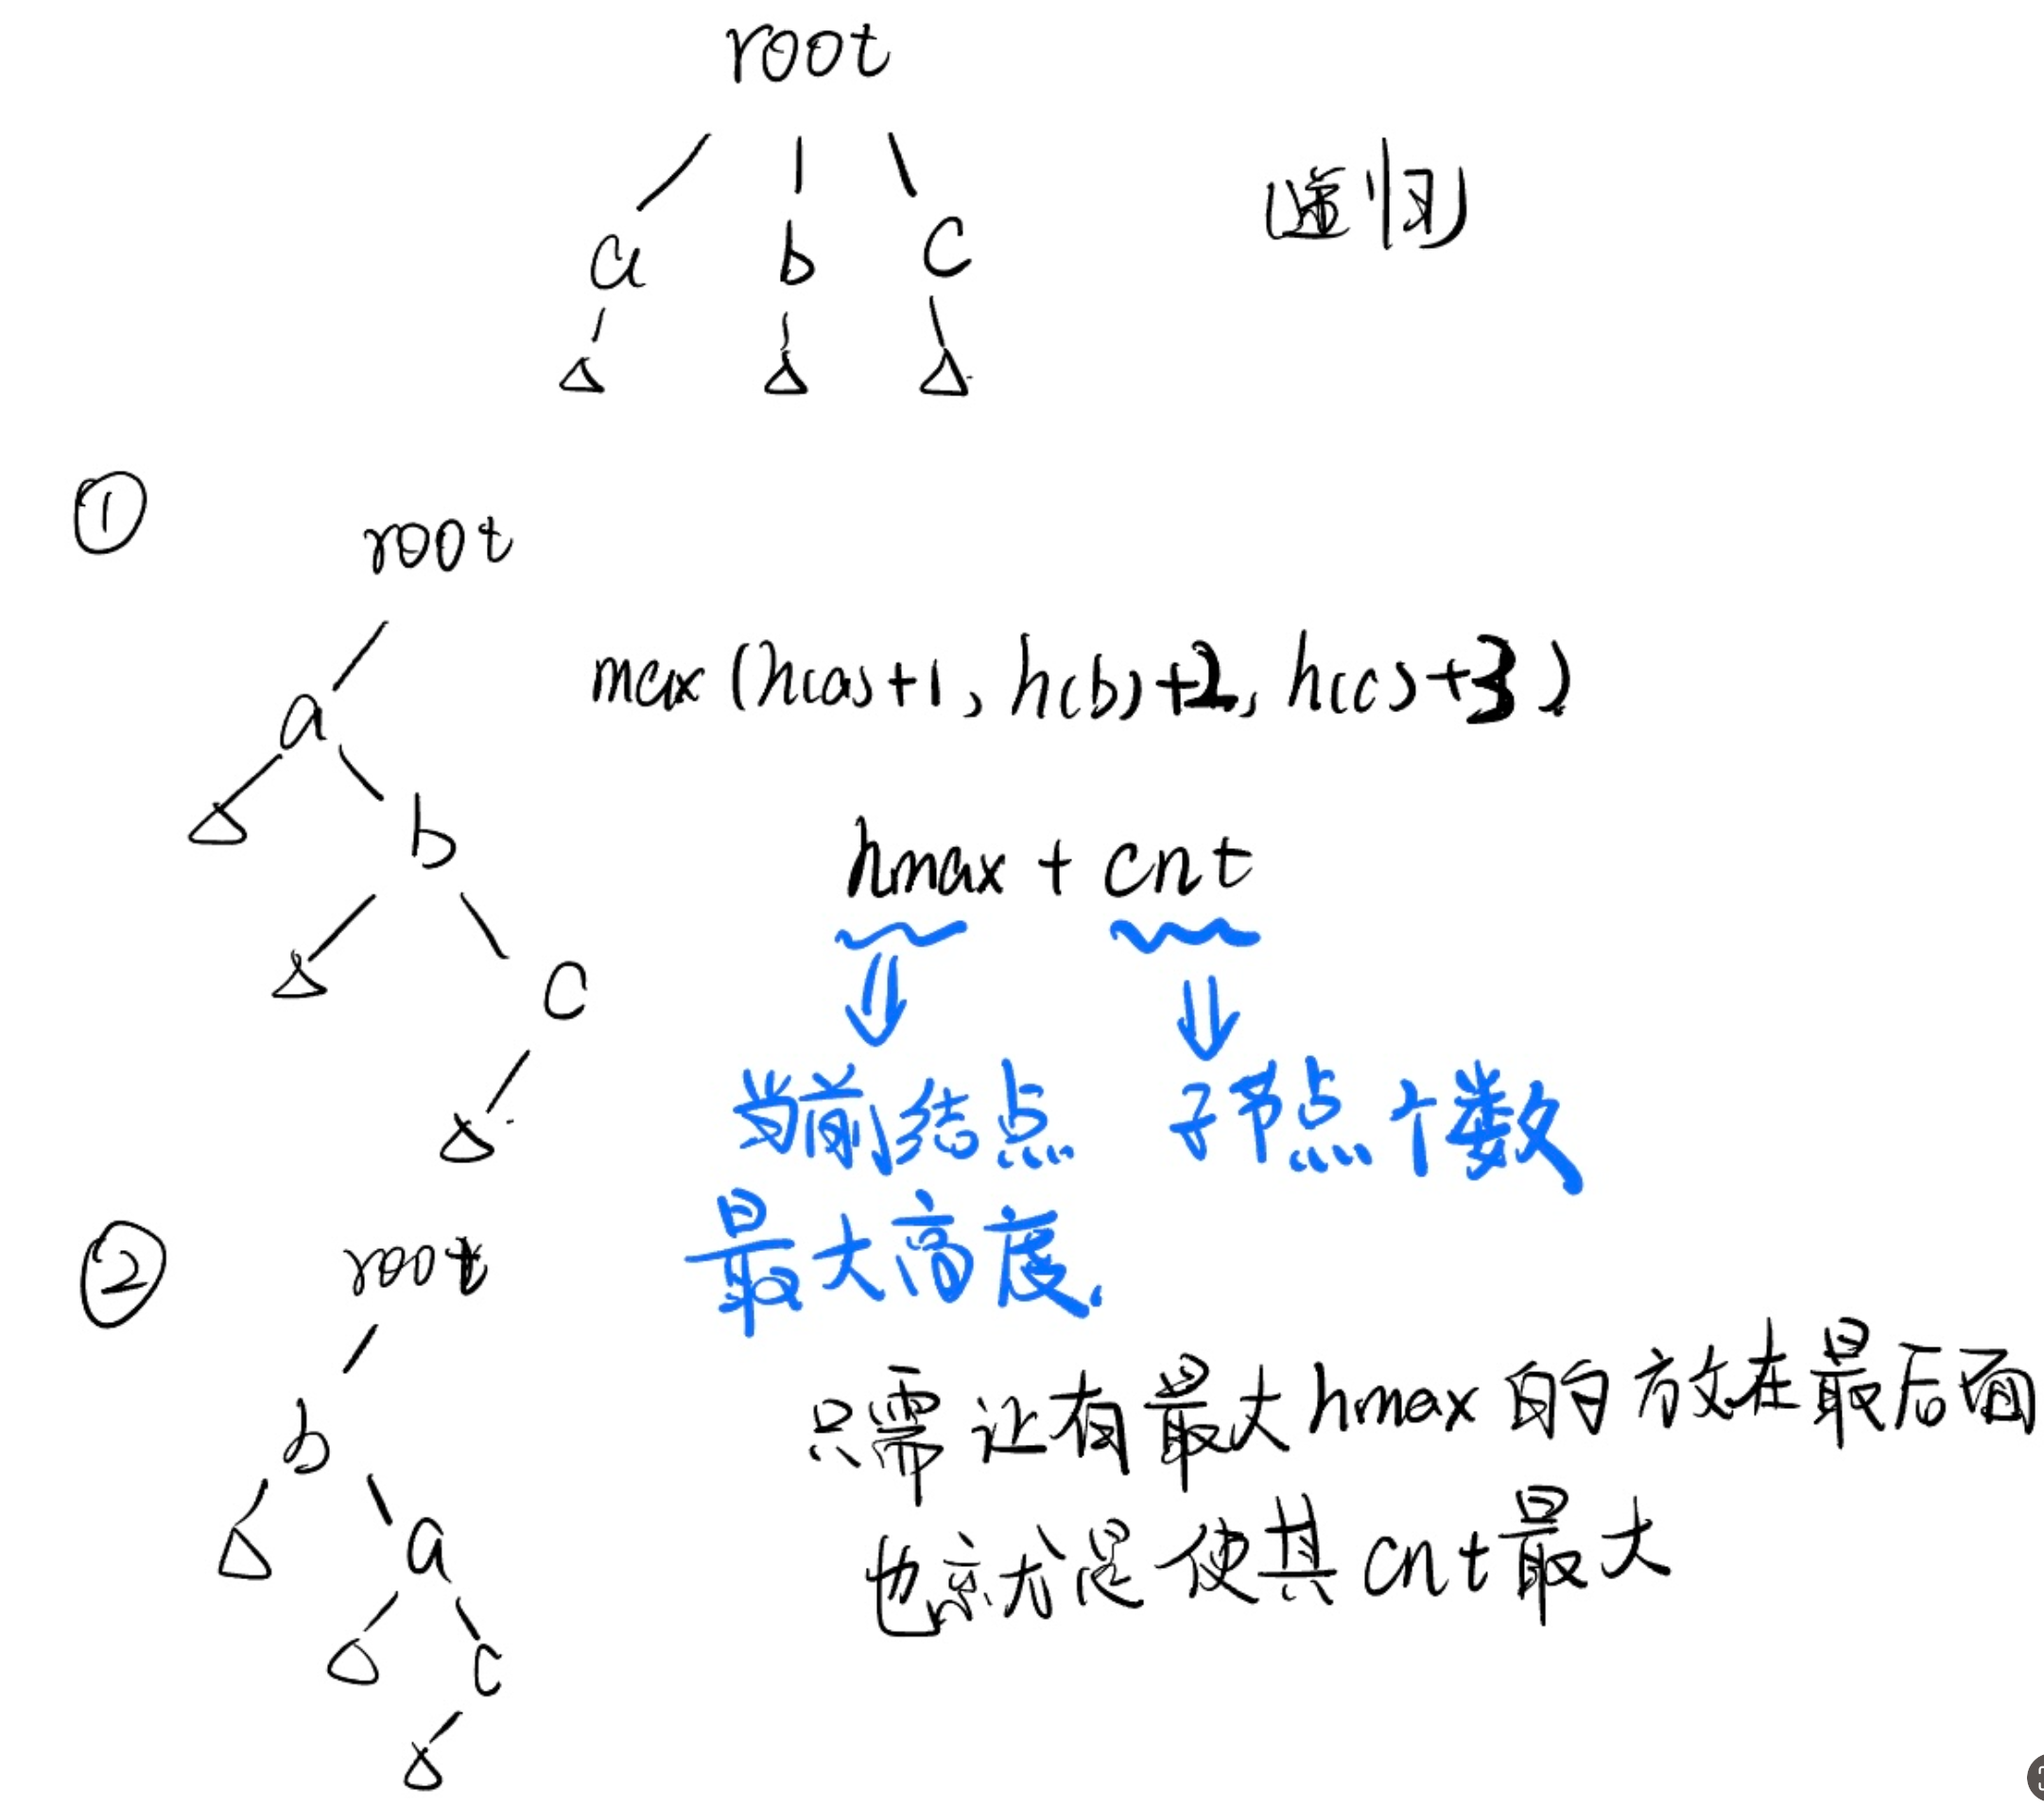 root
a b c
(递归)
①
root
a
max (h(a)+1, h(b)+2, h(c)+3)
b
hmax + cnt
c
当前结点 子节点个数
最大高度.
②
root
b
只需让有最大hmax的放在最后面
a
也就是使其cnt最大
c